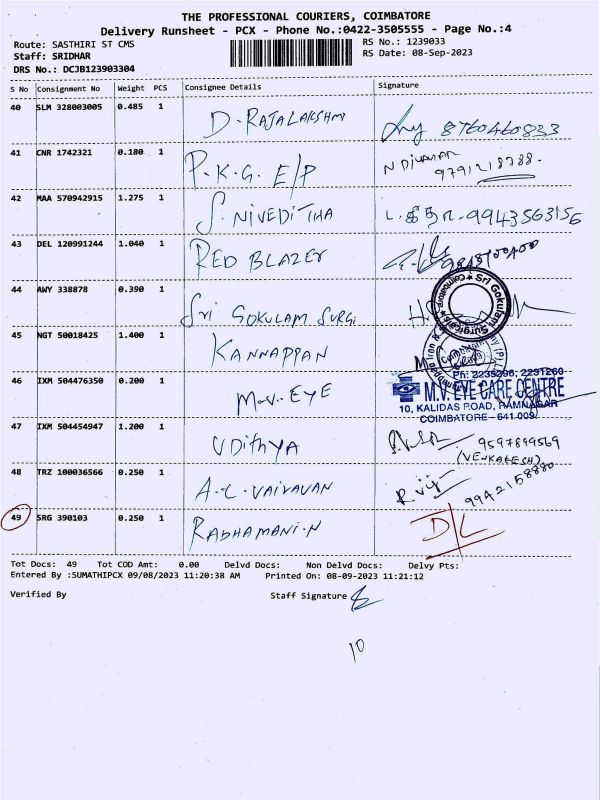 THE PROFESSIONAL COURIERS, COIMBATORE
Delivery Runsheet - PCX - Phone No.:0422-3505555 - Page No.:4
Route: SASTHIRI ST CMS
RS No.: 1239033
Staff: SRIDHAR
RS Date: 08-Sep-2023
DRS No.: DCJB123903304
S No Consignment No Weight PCS Consignee Details Signature
40 SLM 328003005 0.485 1 D. RAJALAKSHMI 8760460833
41 CNR 1742321 0.180 1 P.K.G. E/P NDIVAKAR
9791218788.
42 MAA 570942915 1.275 1 S. NIVEDITHA 9943563156
43 DEL 120991244 1.040 1 RED BLAZER
44 AWY 338878 0.390 1 Sri GOKULAM SURGI
Sri Gokulam Surgicals Coimbatore
45 NGT 50018425 1.400 1 KANNAPPAN
46 IXM 504476350 0.200 1 M.V. EYE
Ph: 2235296, 2231260
M.V. EYE CARE CENTRE
10, KALIDAS ROAD, RAMNAGAR
COIMBATORE - 641 009
47 IXM 504454947 1.200 1 UDITHYA 9597899569
(VENKATESH)
48 TRZ 100036566 0.250 1 A.C. VAIRAVAN R. viji 9942158880
49 SRG 390103 0.250 1 RADHAMANI.N D/L
Tot Docs: 49 Tot COD Amt: 0.00 Delvd Docs: Non Delvd Docs: Delvy Pts:
Entered By :SUMATHIPCX 09/08/2023 11:20:38 AM Printed On: 08-09-2023 11:21:12
Verified By Staff Signature
10